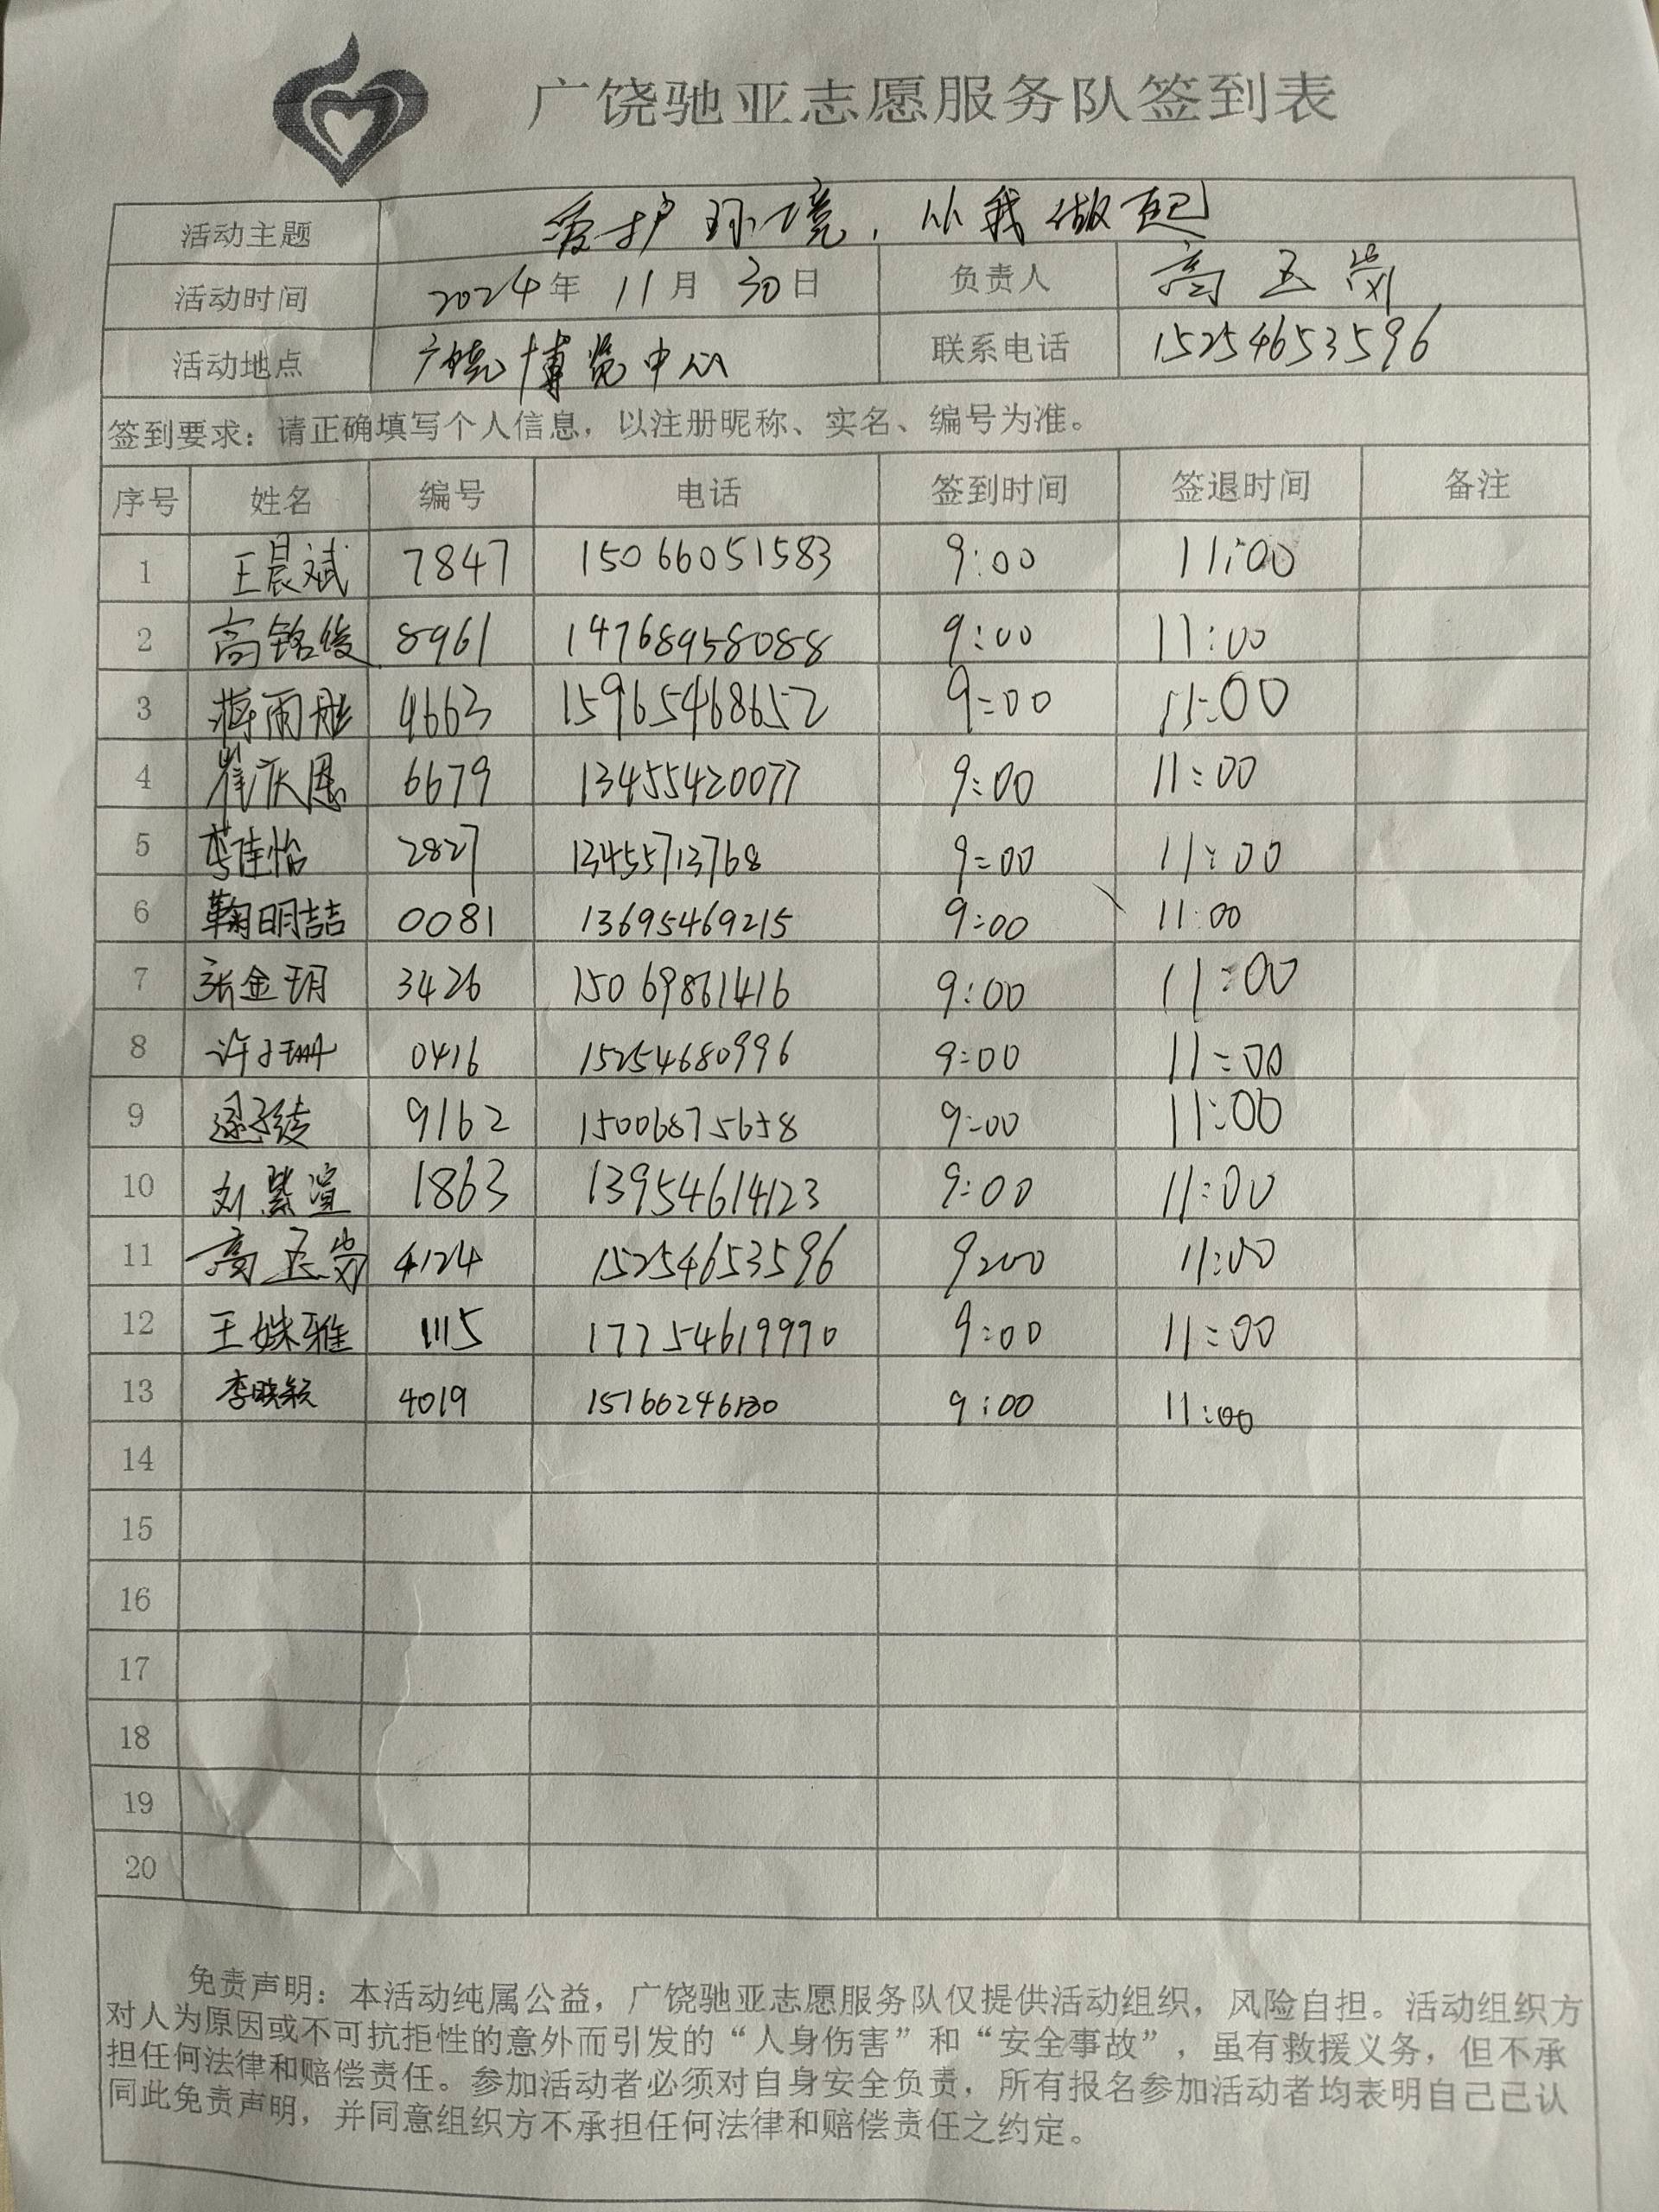 广饶驰亚志愿服务队签到表
活动主题 爱护环境,从我做起
活动时间 2024年 11月 30日 负责人 高玉岗
活动地点 广饶博览中心 联系电话 15254653596
签到要求:请正确填写个人信息,以注册昵称、实名、编号为准。
序号 姓名 编号 电话 签到时间 签退时间 备注
1 王晨斌 7847 15066051583 9:00 11:00
2 高铭俊 8961 14768958088 9:00 11:00
3 蒋雨彤 4663 15965468652 9:00 11:00
4 崔庆恩 6679 13455420077 9:00 11:00
5 李佳怡 2827 13455713768 9:00 11:00
6 鞠明喆 0081 13695469215 9:00 11:00
7 张金玥 3426 15069861416 9:00 11:00
8 许子珊 0416 15254680996 9:00 11:00
9 9162 15006875658 9:00 11:00
10 刘紫渲 1863 13954614123 9:00 11:00
11 高玉岗 4124 15254653596 9:00 11:00
12 王姝雅 1115 17754619990 9:00 11:00
13 李映颖 4019 9:00 11:00
14
15
16
17
18
19
20
免责声明:本活动纯属公益,广饶驰亚志愿服务队仅提供活动组织,风险自担。活动组织方
对人为原因或不可抗拒性的意外而引发的“人身伤害”和“安全事故”,虽有救援义务,但不承
担任何法律和赔偿责任。参加活动者必须对自身安全负责,所有报名参加活动者均表明自己已认
同此免责声明,并同意组织方不承担任何法律和赔偿责任之约定。